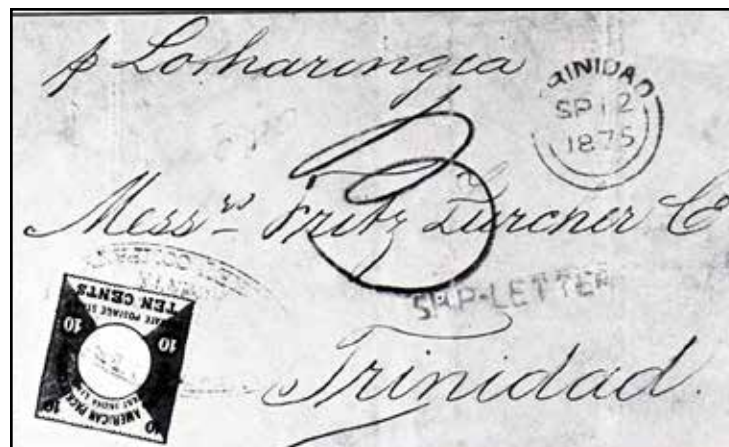 p Lotharingia
TRINIDAD
SP 12
1875
3
Messrs Fritz Zurcner C
SHIP-LETTER
TEN CENTS
10
10
10
10
AMERICAN PACK
Trinidad.